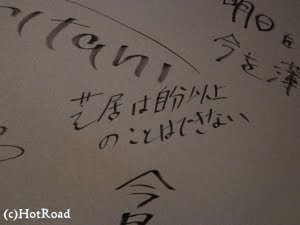 itani
明日を
今を
芝居は自分以上
のことはできない
今
(c)HotRoad